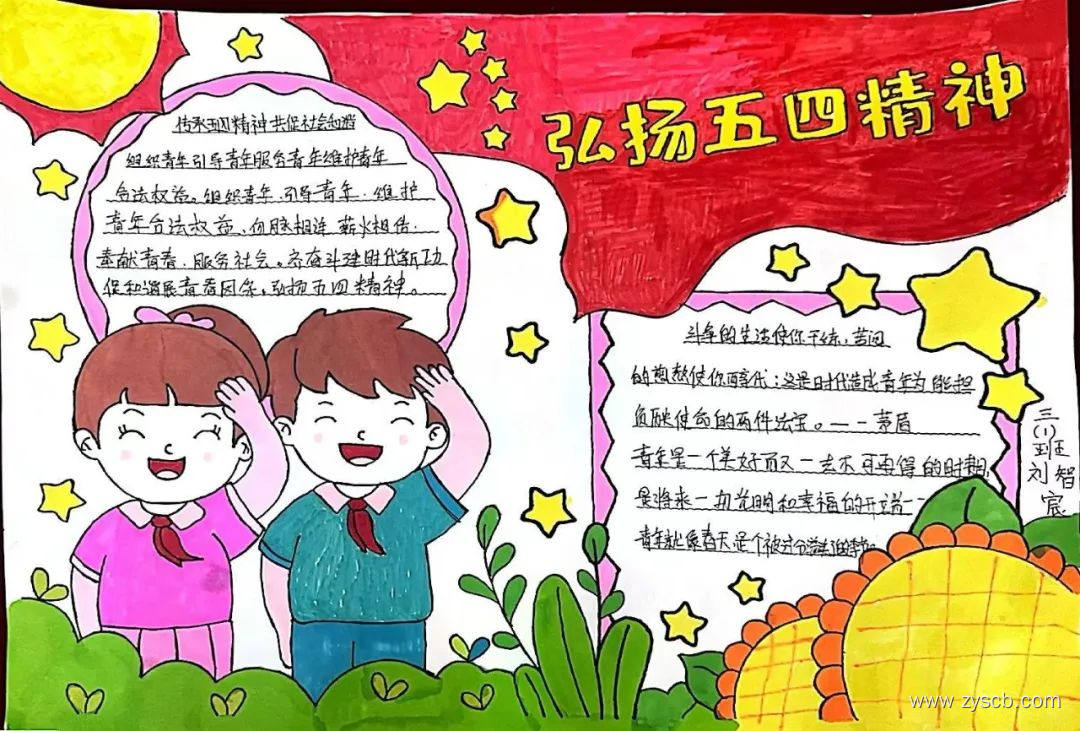 弘扬五四精神
传承五四精神共促社会和谐
组织青年引导青年服务青年维护青年
合法权益。组织青年.引导青年.维护
青年合法权益、血脉相连 薪火相传.
奉献青春.服务社会。齐奋斗建时代新功
促和谐展青春风采,弘扬五四精神。
斗争的生活使你干练,苦闷
的煎熬使你醇化;这是时代造成青年为能担
负历史使命的两件法宝。——茅盾
青年是一个美好而又一去不可再得的时期,
是将来一切光明和幸福的开端——
青年就象春天是个被过分
三(1)班
刘智宸
www.zyscb.com